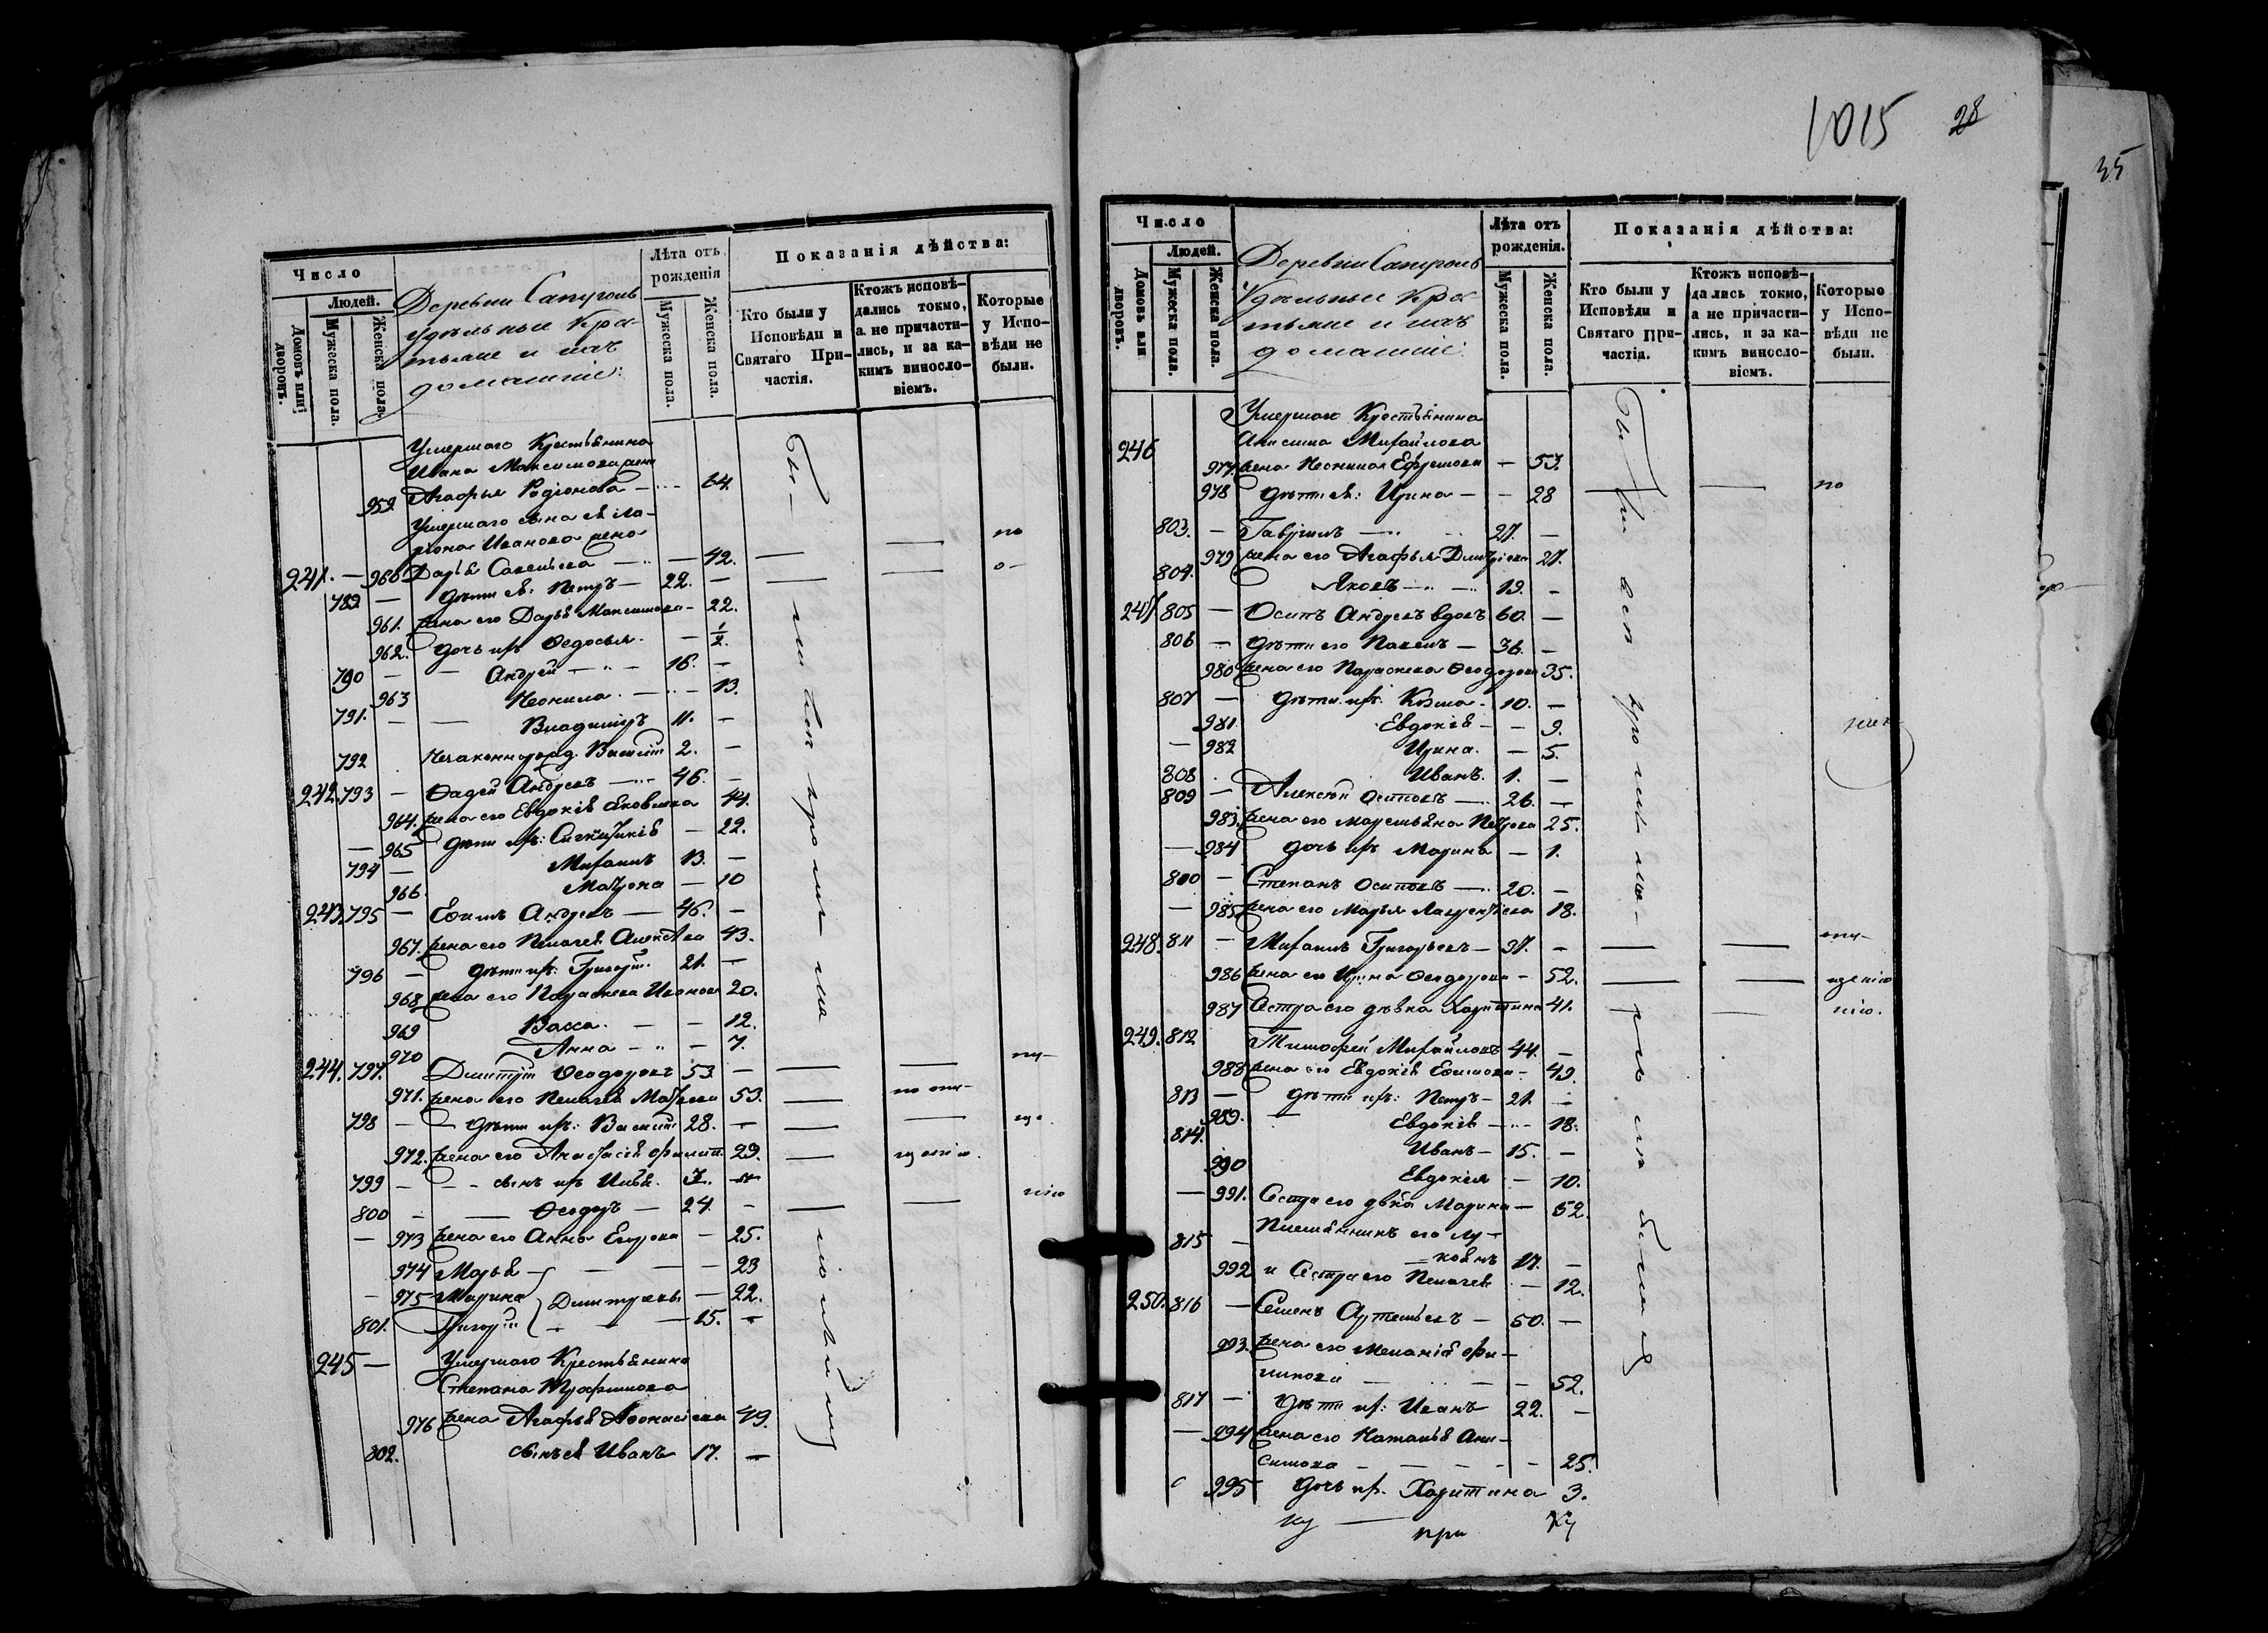 Число
Людей.
Домовъ или дворовъ.
Мужеска пола.
Женска пола.
Деревни
Удѣльные Кре-
стьяне и ихъ
домашніе:
Лѣта отъ
рожденія
Мужеска пола.
Женска пола.
Показанія дѣйства:
Кто были у
Исповѣди и
Святаго При-
частія.
Ктожъ исповѣ-
дались токмо,
а не причасти-
лись, и за ка-
кимъ винносло-
віемъ.
Которые
у Испо-
вѣди не
были.
Умершаго Крестьянина
Ивана Максимова жена
959. Агафья Родіонова — 64.
Умершаго сына ея Ила-
ріона Иванова жена
241. — 960. Дарья Савельева — 42.
789 — дѣти ея: Петръ — 22. —
961. жена его Дарья Максимова — 22.
962. дочь ихъ Ѳедосья. — 1/2.
790 — Андрей — 16. —
963 Неонила. — 13.
791. — Владиміръ 11. —
792 Незаконнорожд. Василій 2. —
242. 793 — Фадей Андреевъ — 46. —
964. жена его Евдокія Яковлева 44.
— 965 дѣти ихъ: — 22.
794 — Михаилъ 13. —
966. Матрона — 10
243. 795 — Ефимъ Андреевъ — 46. —
967. жена его Пелагея Алексѣева 43.
796 — дѣти ихъ: Григорій. 21. —
968 жена его Параскева Иванова 20.
969 Васса. — — 12.
970 Анна — — 7.
244. 797. Димитрій Ѳеодоровъ 53 —
971. жена его Пелагея 53.
798 — дѣти ихъ: Василій 28. —
972. жена его Анастасія Филип. 29.
799 — сынъ ихъ Илья. 7. —
800 — Ѳеодоръ — 24. —
— 973 жена его Анна Егорова — 25.
974 Марья — — 23
— 975 Марина Димитріевы — 22.
801. Григорій — 15. —
245 — Умершаго Крестьянина
Степана Трофимова
976 жена Агафья Афонасіева 49.
802. сынъ ея Иванъ 17. —
1015 28
35
Число
Людей.
Домовъ или дворовъ.
Мужеска пола.
Женска пола.
Деревни
Удѣльные Кре-
стьяне и ихъ
домашніе.
Лѣта отъ
рожденія.
Мужеска пола.
Женска пола.
Показанія дѣйства:
Кто были у
Исповѣди и
Святаго При-
частія.
Ктожъ исповѣ-
дались токмо,
а не причасти-
лись, и за ка-
кимъ винносло-
віемъ.
Которыо
у Испо-
вѣди не
были.
Умершаго Крестьянина
246 Анисима Михайлова
977. жена Неонила Ефремова — 53.
978 дѣти ея: Ирина — — 28
803. — Гавріилъ — 27. —
979 жена его Агафья Димитріева 27.
804. Яковъ — 19. —
247 805 — Осипъ Андреевъ вдовъ 60. —
806 — дѣти его Павелъ — 36. —
980 жена его Параскева Ѳеодорова 35.
807 — дѣти ихъ: Козма. 10. —
981 Евдокія — — 9.
— 982 Ирина. — 5.
808 Иванъ. 1. —
809 — Алексѣй Осиповъ — 26. —
983. жена его Маремьяна Петрова 25.
— 984 дочь ихъ Марина — 1.
800 — Степанъ Осиповъ — 20. —
— 985 жена его Марья Лаврентіева 18.
248. 811 — Михаилъ Григорьевъ — 37. —
986 жена его Ирина Ѳеодорова — 52.
987 Сестра его дѣвка Харитина 41.
249. 812 Тимофей Михайловъ 44. —
988 жена его Евдокія Ефимова — 49.
813 — дѣти ихъ: Петръ — 21. —
989. Евдокія — 18.
814. Иванъ — 15. —
990 Евдокія — 10.
— 991. Сестра его дѣвка Марина — 52.
815 — Племянникъ его Лу-
кьянъ 17. —
992 и Сестра его Пелагея — 12.
250. 816 — Семенъ Артемьевъ — 50. —
993. жена его Меланія Фи-
липова — 52.
817 — дѣти ихъ: Иванъ 22. —
— 994 жена его Наталья Ани-
симова — 25.
995 дочь ихъ Харитина 3.